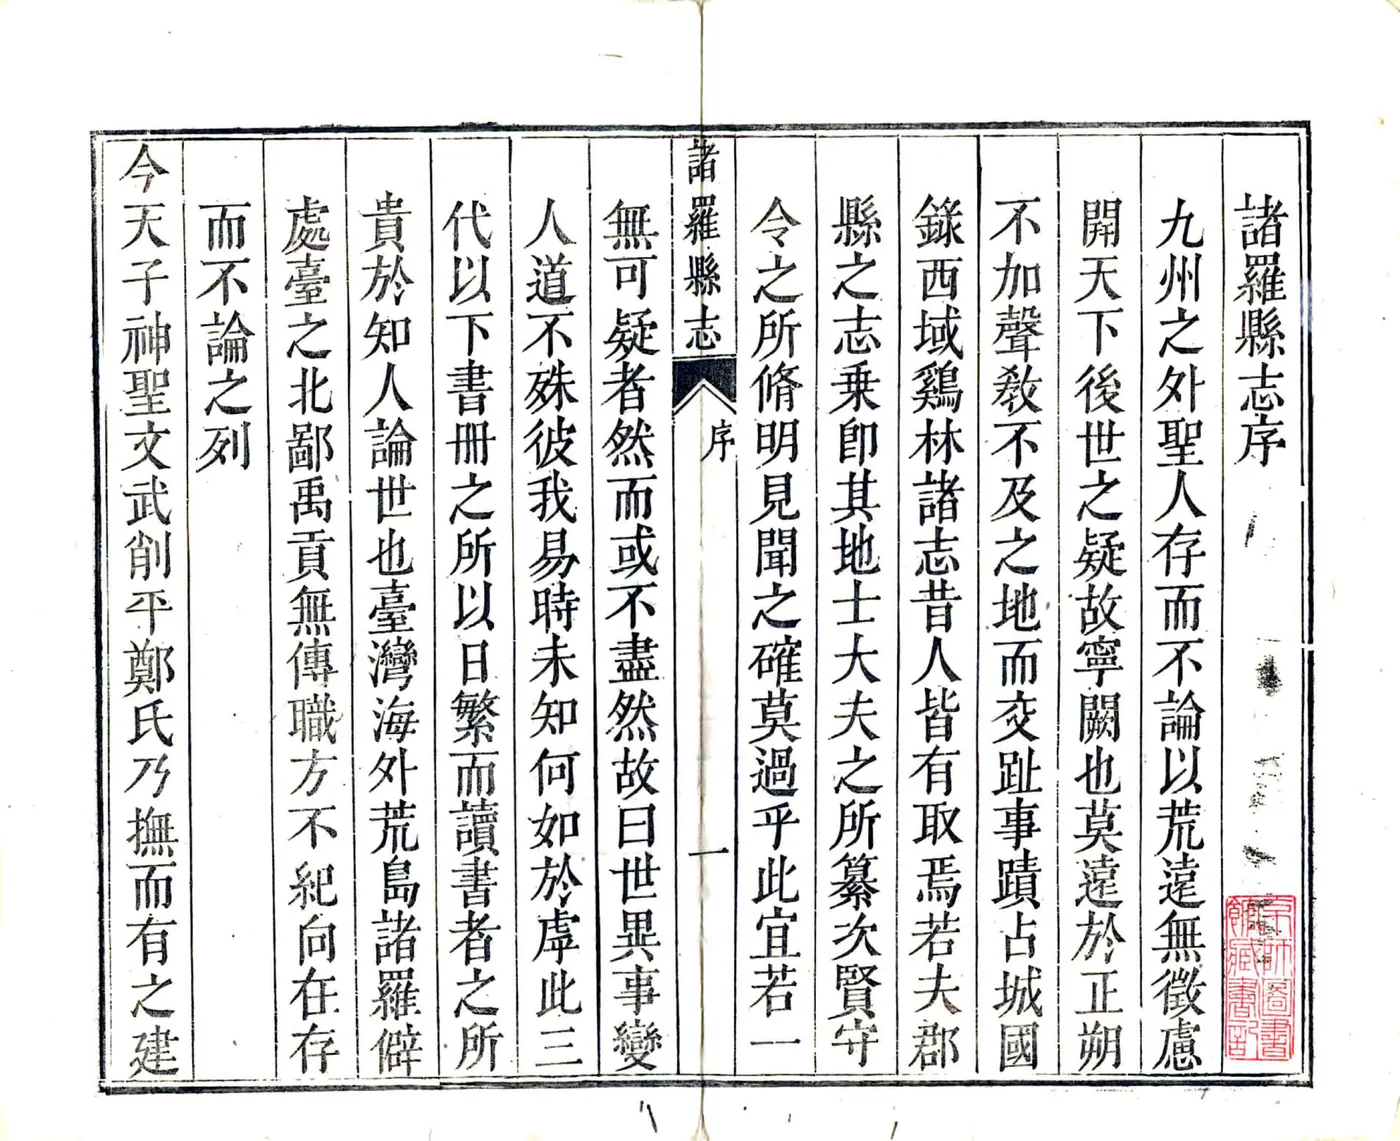 諸羅縣志序
九州之外聖人存而不論以荒遠無徵慮
開天下後世之疑故寧闕也莫遠於正朔
不加聲敎不及之地而交趾事蹟占城國
錄西域鷄林諸志昔人皆有取焉若夫郡
縣之志乗卽其地士大夫之所纂次賢守
令之所脩明見聞之確莫過乎此宜若一
諸羅縣志 序 一
無可疑者然而或不盡然故曰世異事變
人道不殊彼我易時未知何如於虖此三
代以下書冊之所以日繁而讀書者之所
貴於知人論世也臺灣海外荒島諸羅僻
處臺之北鄙禹貢無傳職方不紀向在存
而不論之列
今天子神聖文武削平鄭氏乃撫而有之建